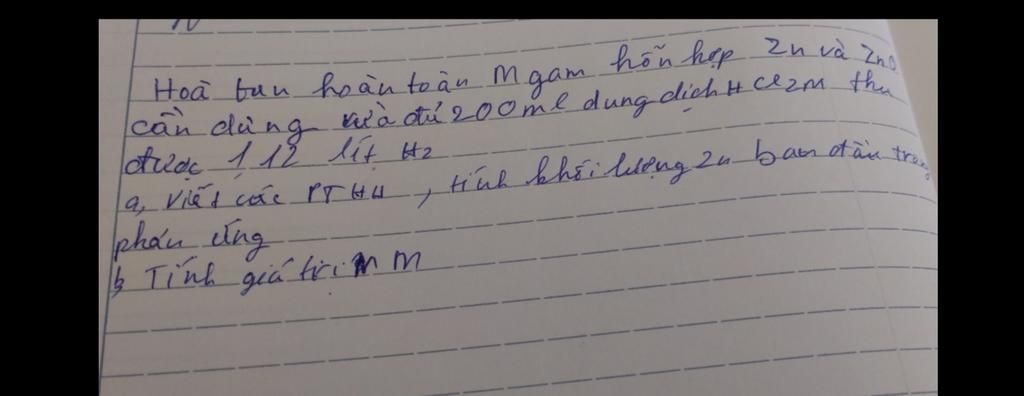 Hoà tan hoàn toàn m gam hỗn hợp Zn và ZnO
cần dùng vừa đủ 200ml dung dịch HCl 2M thu
được 1,12 lít H2
a, Viết các PTHH, tính khối lượng Zn ban đầu trong
phản ứng
b, Tính giá trị m